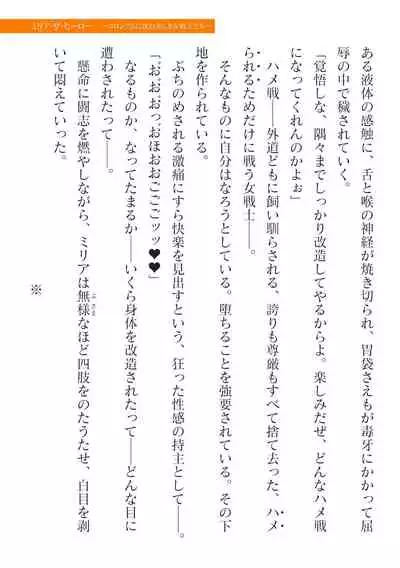 ミリア・ザ・ヒーロー
ある液体の感触に、舌と喉の神経が焼き切られ、胃袋さえもが毒牙にかかって屈
辱の中で穢されていく。
「覚悟しな、隅々までしっかり改造してやるからよ。楽しみだぜ、どんなハメ戦
になってくれんのかよぉ」
ハメ戦――外道どもに飼い馴らされる、誇りも尊厳もすべて捨て去った、ハメ
られるためだけに戦う女戦士――。
そんなものに自分はなろうとしている。堕ちることを強要されている。その下
地を作られている。
ぶちのめされる激痛にすら快楽を見出すという、狂った性感の持主として――。
「お゛お゛お゛っ、おほおおごごごッッ♥♥」
なるものか、なってたまるか――いくら身体を改造されたって――どんな目に
遭わされたって――。
懸命に闘志を燃やしながら、ミリアは無様なほど四肢をのたうたせ、白目を剥
いて悶えていった。
※